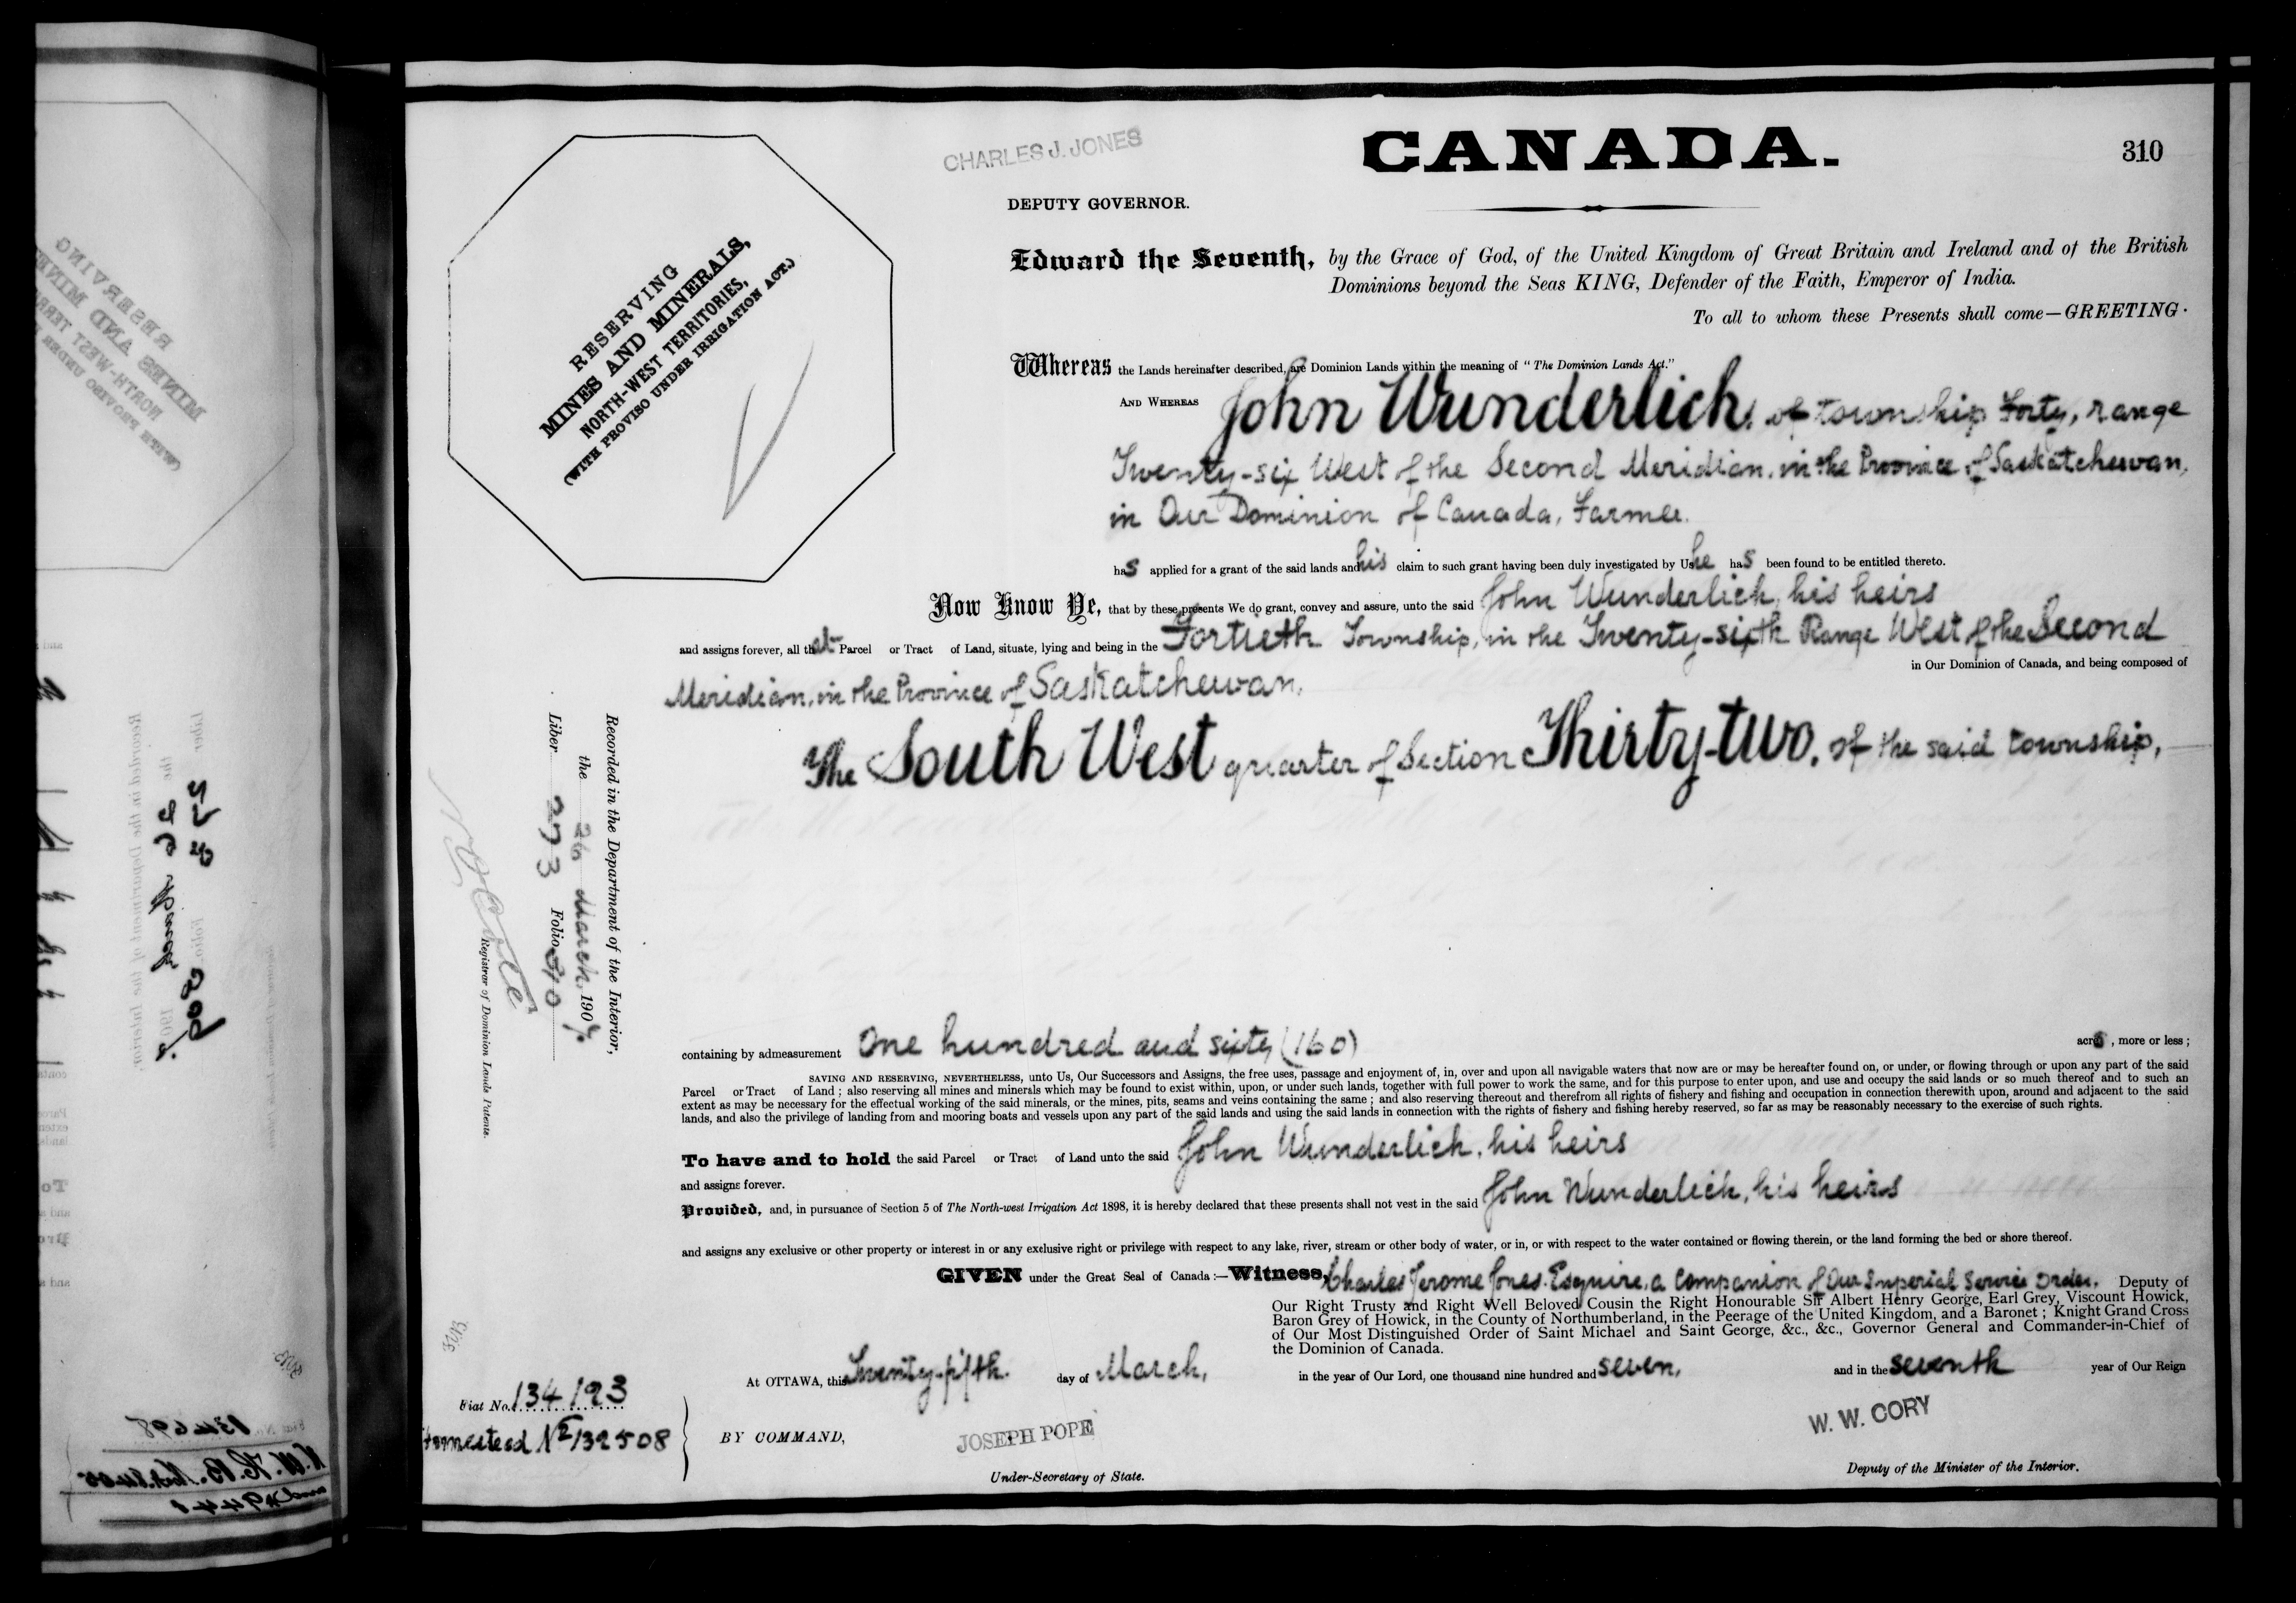 CHARLES J. JONES
CANADA.
310
DEPUTY GOVERNOR.
RESERVING
MINES AND MINERALS,
NORTH-WEST TERRITORIES,
(WITH PROVISO UNDER IRRIGATION ACT.)
Edward the Seventh, by the Grace of God, of the United Kingdom of Great Britain and Ireland and of the British
Dominions beyond the Seas KING, Defender of the Faith, Emperor of India.
To all to whom these Presents shall come—GREETING·
Whereas the Lands hereinafter described, are Dominion Lands within the meaning of "The Dominion Lands Act."
AND WHEREAS John Wunderlich, of township Forty, range
Twenty-six West of the Second Meridian, in the Province of Saskatchewan,
in Our Dominion of Canada, Farmer.
has applied for a grant of the said lands and his claim to such grant having been duly investigated by Us he has been found to be entitled thereto.
Now Know Ye, that by these presents We do grant, convey and assure, unto the said John Wunderlich, his heirs
and assigns forever, all that Parcel or Tract of Land, situate, lying and being in the Fortieth Township, in the Twenty-sixth Range West of the Second
in Our Dominion of Canada, and being composed of
Meridian, in the Province of Saskatchewan.
The South West quarter of Section Thirty-two, of the said township,
Recorded in the Department of the Interior,
the 26 March, 1907.
Liber 273 Folio 310
Registrar of Dominion Lands Patents.
containing by admeasurement One hundred and sixty (160) acres, more or less;
SAVING AND RESERVING, NEVERTHELESS, unto Us, Our Successors and Assigns, the free uses, passage and enjoyment of, in, over and upon all navigable waters that now are or may be hereafter found on, or under, or flowing through or upon any part of the said
Parcel or Tract of Land; also reserving all mines and minerals which may be found to exist within, upon, or under such lands, together with full power to work the same, and for this purpose to enter upon, and use and occupy the said lands or so much thereof and to such an
extent as may be necessary for the effectual working of the said minerals, or the mines, pits, seams and veins containing the same; and also reserving thereout and therefrom all rights of fishery and fishing and occupation in connection therewith upon, around and adjacent to the said
lands, and also the privilege of landing from and mooring boats and vessels upon any part of the said lands and using the said lands in connection with the rights of fishery and fishing hereby reserved, so far as may be reasonably necessary to the exercise of such rights.
To have and to hold the said Parcel or Tract of Land unto the said John Wunderlich, his heirs
and assigns forever.
Provided, and, in pursuance of Section 5 of The North-west Irrigation Act 1898, it is hereby declared that these presents shall not vest in the said John Wunderlich, his heirs
and assigns any exclusive or other property or interest in or any exclusive right or privilege with respect to any lake, river, stream or other body of water, or in, or with respect to the water contained or flowing therein, or the land forming the bed or shore thereof.
GIVEN under the Great Seal of Canada:—Witness, Charles Jerome Jones, Esquire, a Companion of Our Imperial Service Order, Deputy of
Our Right Trusty and Right Well Beloved Cousin the Right Honourable Sir Albert Henry George, Earl Grey, Viscount Howick,
Baron Grey of Howick, in the County of Northumberland, in the Peerage of the United Kingdom, and a Baronet; Knight Grand Cross
of Our Most Distinguished Order of Saint Michael and Saint George, &c., &c., Governor General and Commander-in-Chief of
the Dominion of Canada.
At OTTAWA, this Twenty-fifth day of March, in the year of Our Lord, one thousand nine hundred and seven, and in the seventh year of Our Reign
Fiat No. 134193
Homestead No 132508
BY COMMAND,
JOSEPH POPE
Under-Secretary of State.
W. W. CORY
Deputy of the Minister of the Interior.